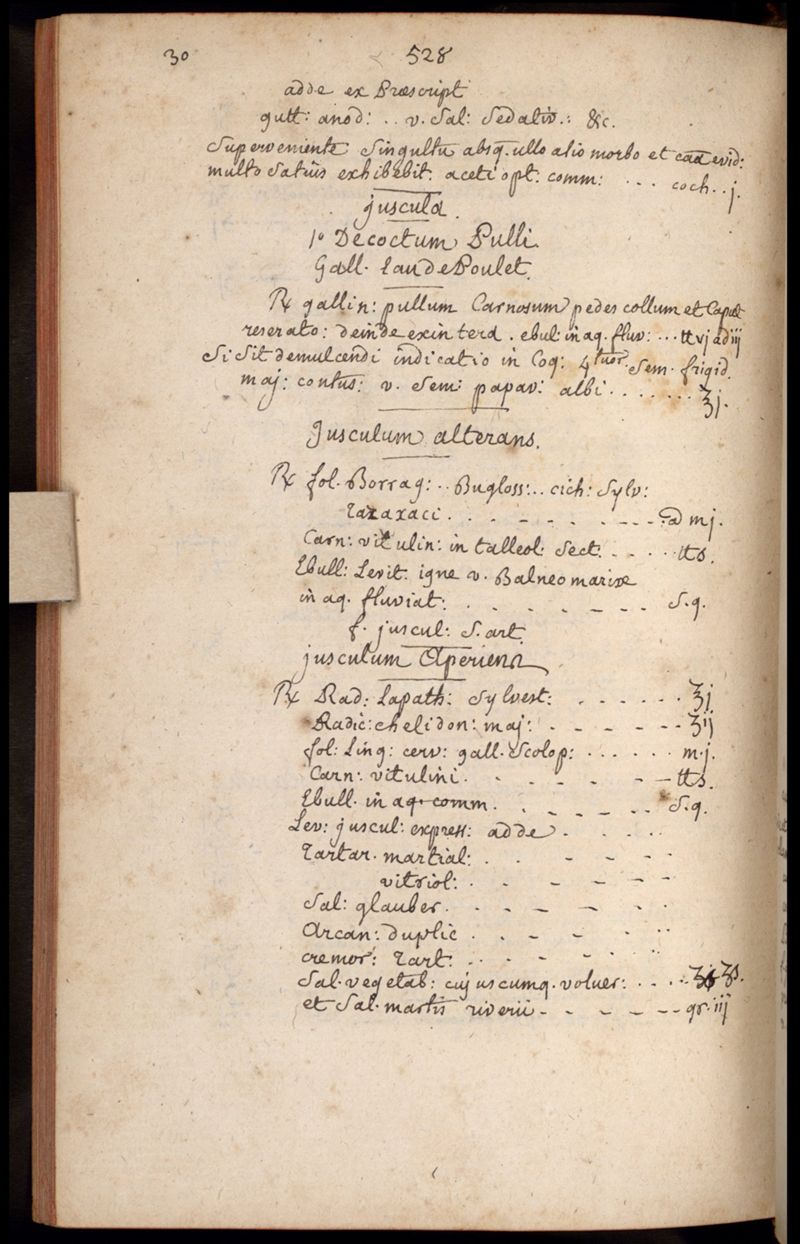 30 528
adde ex Præscript
gutt: anod: .. v. Sal: Sedativ.: &c.
Superveniente Singultu absq. ullo alio morbo et evid:
multo Satius exhibebit. aceti opt: comm: ... coch..j.
juscula.
1º Decoctum Pulli
Gall. Eau de Poulet.
℞ gallin: pullum Carnosum pedes collum et Caput
reserato: deinde exintera. ebul: in aq. fluv: ... ℔vj ad iij
Si Sit demulcendi indicatio in Coq: 4tuor. Sem. frigid.
maj: contus: v. Sem: papav: albi ....... ʒj.
Jusculum alterans.
℞ fol. Borrag: .. Bugloss: .. cich: Sylv:
Taraxaci . . . - - . . - - - . a͞a mj.
Carn: vitulin: in talleol: Sect. - . - . . ℔s.
Ebull: Levit: igne v. Balneo mariæ
in aq. fluviat: . . - . - - - S.q.
f. juscul: S. art.
jusculum Aperiens
℞ Rad: Lapath: Sylvest: . - - . - . . ʒj.
Radic: chelidon: maj: - . - - - - - ʒij
fol: Ling: cerv: gall. Scolop: . - . . . . m.j.
Carn: vitulini . . - . - - - - ℔s.
Ebull. in aq. comm. . . - - - - S.q.
Lev: juscul: express: adde - . . . .
Tartar. martial: . . - - - -
vitriol: . . - - - -
Sal: glauber . . - - . .
Arcan: duplic . . - - . ..
cremor: Tart: . . . - . ..
Sal. vegetab: cujuscumq. voluer: . . . . ʒs.
et Sal. martis riverii - - . - - - - gr. iij